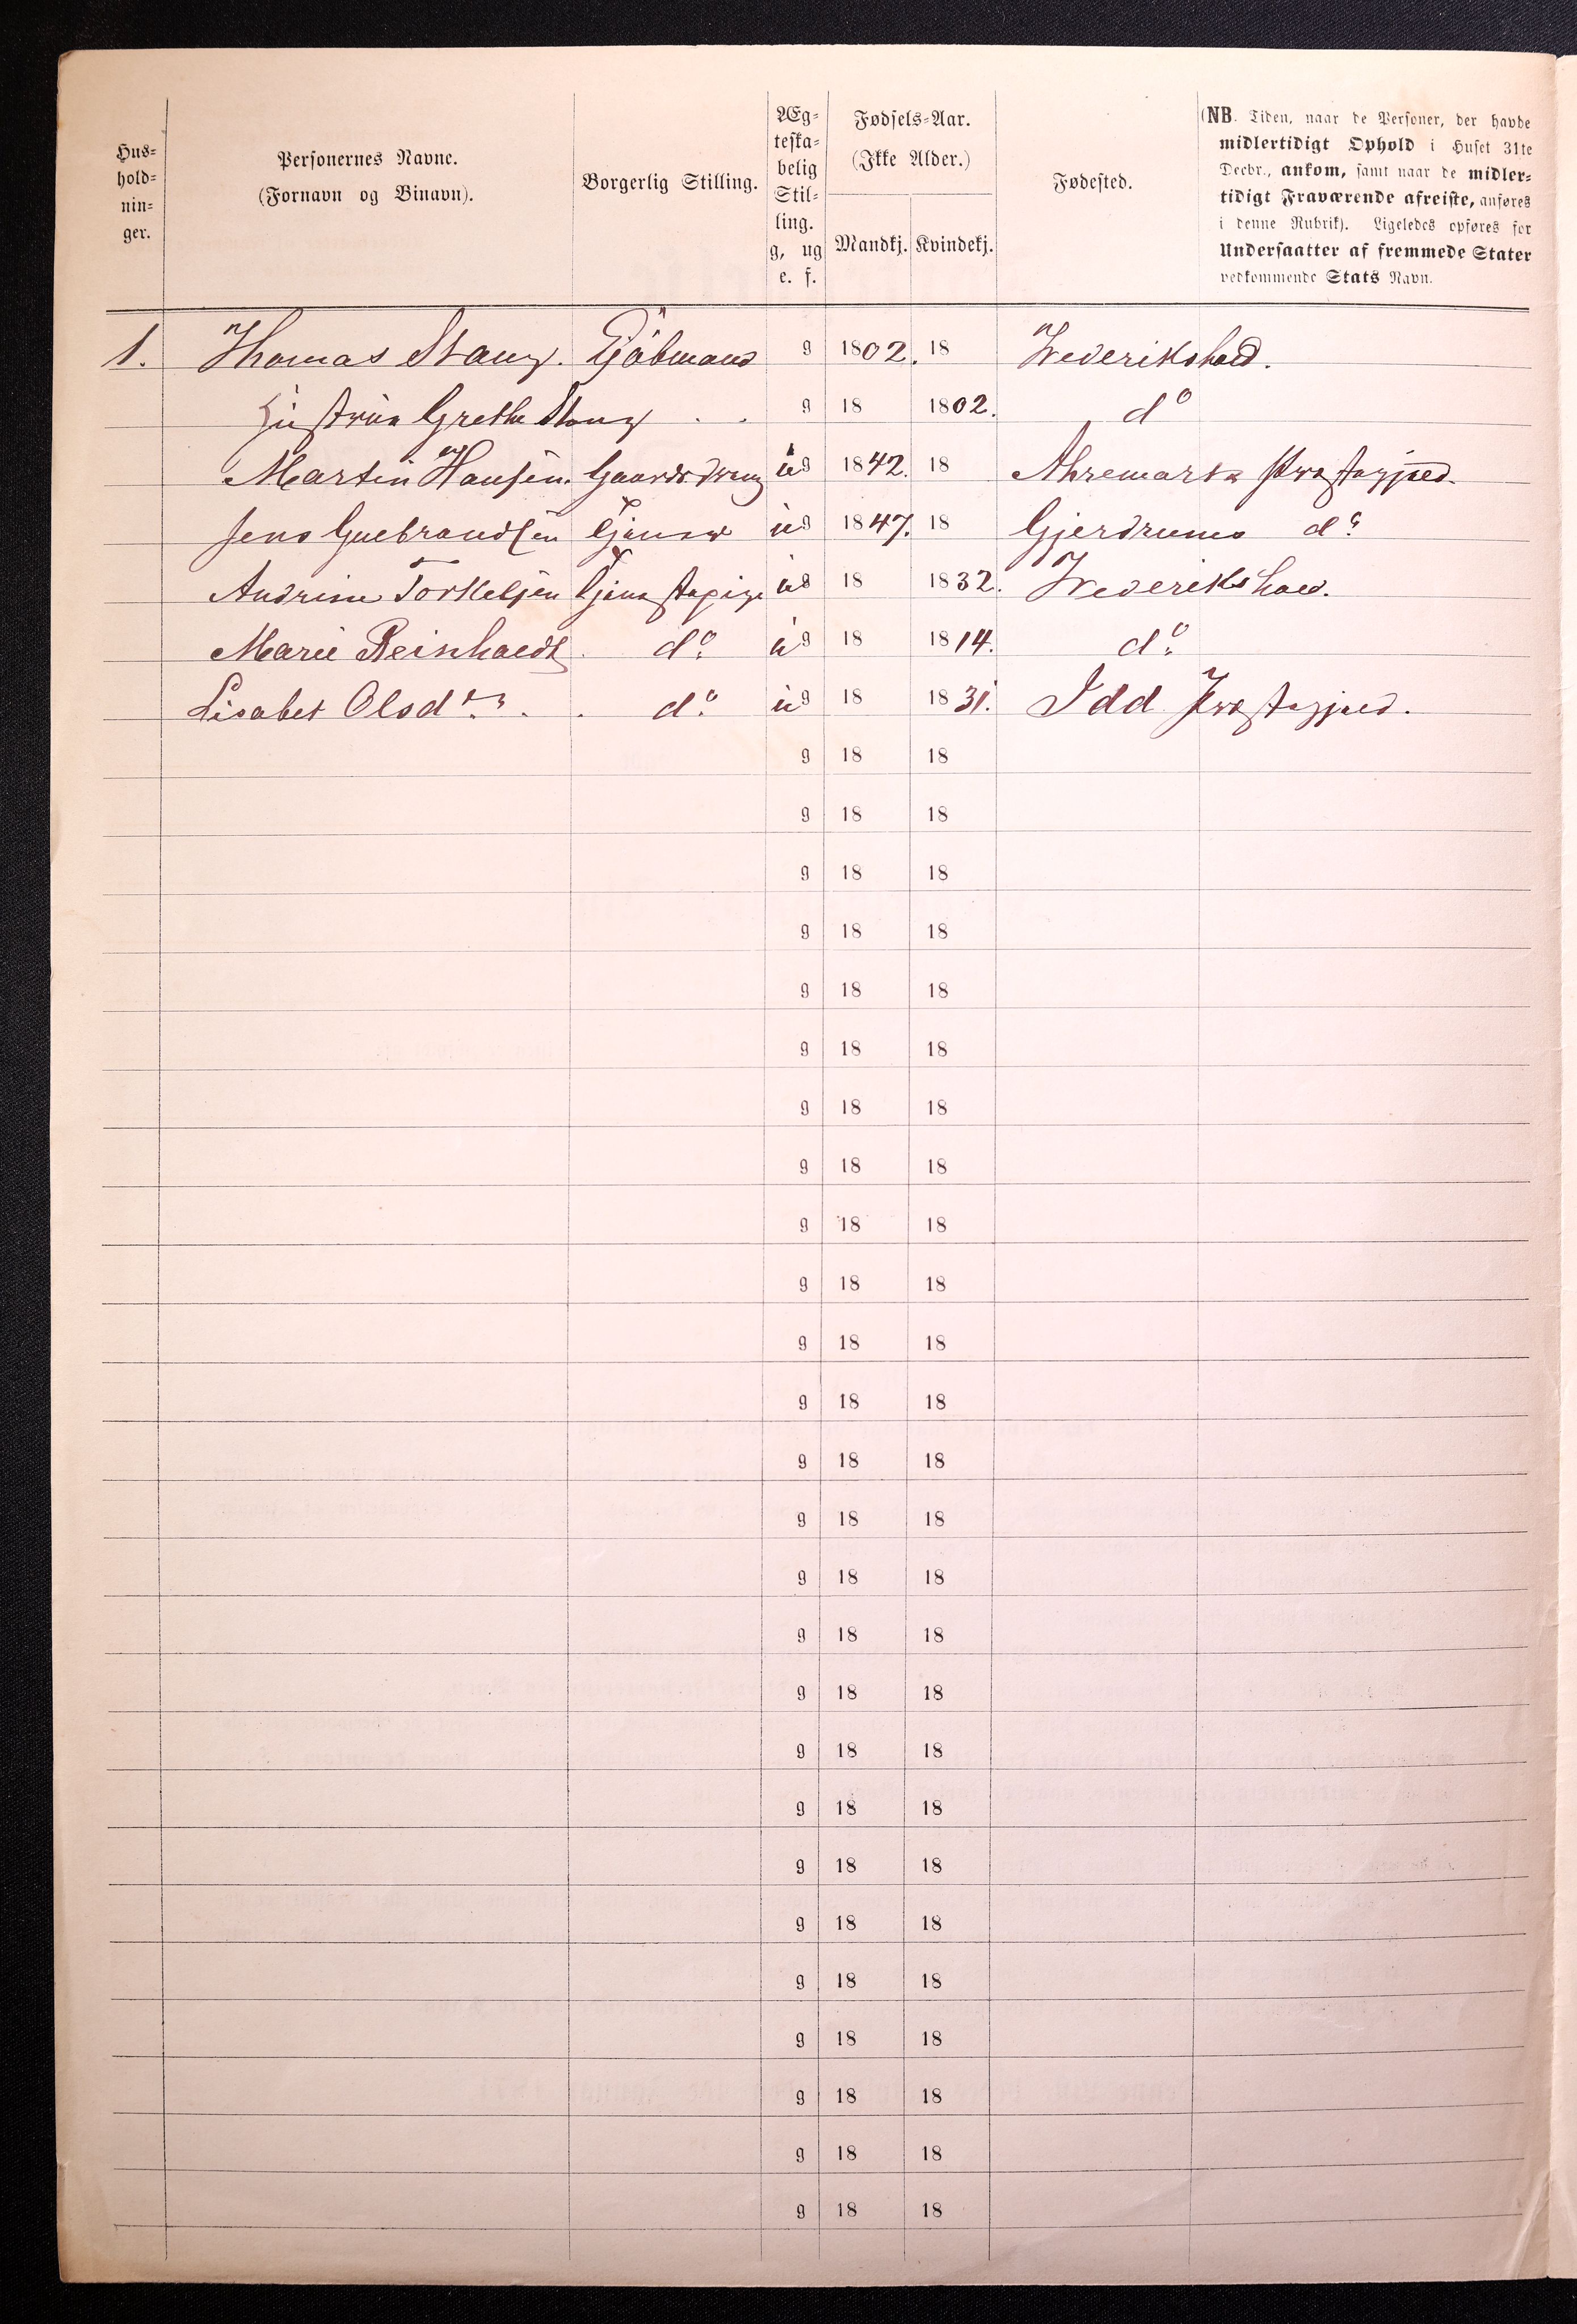 Hus-
hold-
nin-
ger.
Personernes Navne.
(Fornavn og Binavn).
Borgerlig Stilling.
Æg-
teska-
belig
Stil-
ling.
g, ug
e. f.
Fødsels-Aar.
(Ikke Alder.)
Mandkj. Kvindekj.
Fødested.
(NB. Tiden, naar de Personer, der havde
midlertidigt Ophold i Huset 31te
Decbr., ankom, samt naar de midler-
tidigt Fraværende afreiste, anføres
i denne Rubrik). Ligeledes opføres for
Undersaatter af fremmede Stater
vedkommende Stats Navn.
1. Thomas Stang. Kjöbmand g 1802. 18 Frederikshald.
Hustrue Grethe Stang g 18 1802. do
Martin Hansen. Gaardsdreng ug 1842. 18 Ahremarks Præstegjeld.
Jens Gulbrandsen Tjener ug 1847. 18 Gjerdrums do
Andrine Torkelsen Tjenestepige ug 18 1832. Frederikshald.
Marie Reinhardt do ug 18 1814. do
Lisabet Olsdtr. do ug 18 1831. Idd Præstegjeld.
g 18 18
g 18 18
g 18 18
g 18 18
g 18 18
g 18 18
g 18 18
g 18 18
g 18 18
g 18 18
g 18 18
g 18 18
g 18 18
g 18 18
g 18 18
g 18 18
g 18 18
g 18 18
g 18 18
g 18 18
g 18 18
g 18 18
g 18 18
g 18 18
g 18 18
g 18 18